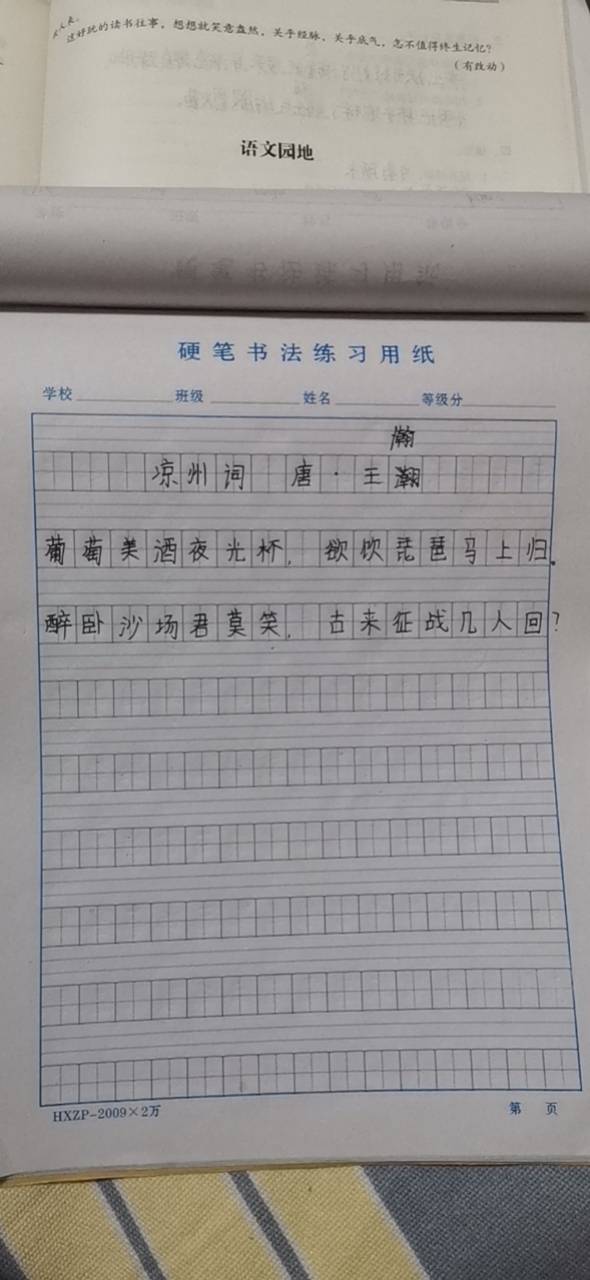 这好玩的读书往事，想想就笑意盎然，关乎经脉，关乎底气，怎不值得终生记忆？
（有改动）
语文园地
硬笔书法练习用纸
学校 班级 姓名 等级分
瀚
凉州词 唐·王瀚
葡萄美酒夜光杯，欲饮琵琶马上归。
醉卧沙场君莫笑，古来征战几人回？
HXZP-2009×2万
第 页